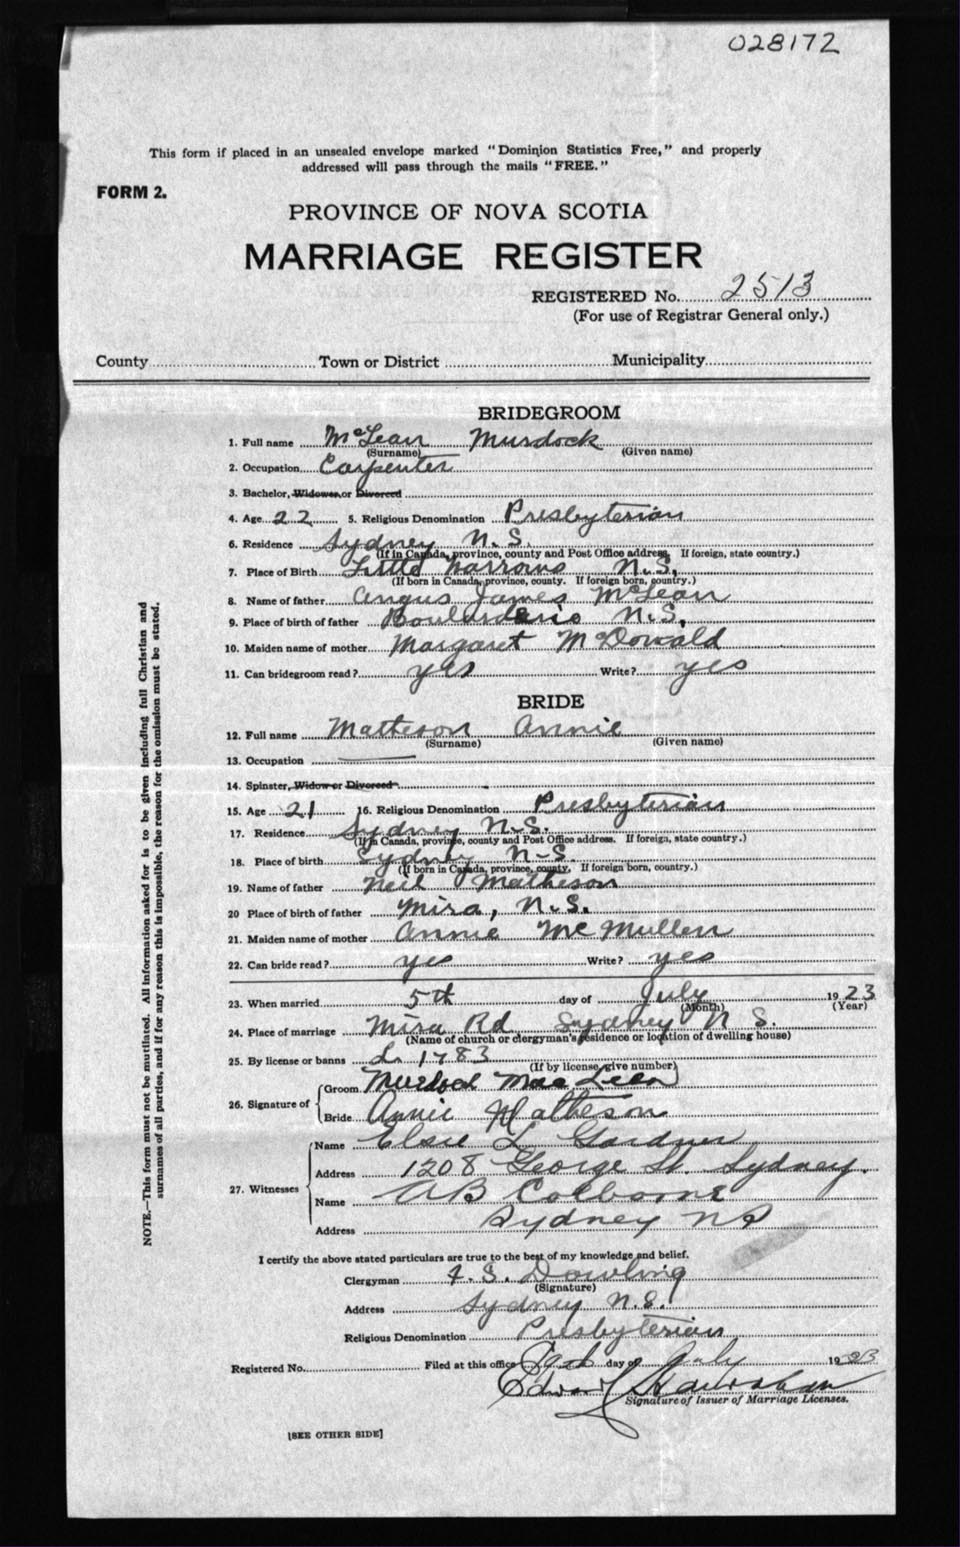 028172
This form if placed in an unsealed envelope marked "Dominion Statistics Free," and properly
addressed will pass through the mails "FREE."
FORM 2.
PROVINCE OF NOVA SCOTIA
MARRIAGE REGISTER
REGISTERED No. 2513
(For use of Registrar General only.)
County Town or District Municipality
BRIDEGROOM
1. Full name McLean Murdock
(Surname) (Given name)
2. Occupation Carpenter
3. Bachelor, Widower or Divorced
4. Age 22 5. Religious Denomination Presbyterian
6. Residence Sydney N.S.
(If in Canada, province, county and Post Office address. If foreign, state country.)
7. Place of Birth Little Narrows N.S.
(If born in Canada, province, county. If foreign born, country.)
8. Name of father Angus James McLean
9. Place of birth of father Boularderie N.S.
10. Maiden name of mother Margaret McDonald
11. Can bridegroom read? yes Write? yes
BRIDE
12. Full name Matheson Annie
(Surname) (Given name)
13. Occupation
14. Spinster, Widow or Divorced
15. Age 21 16. Religious Denomination Presbyterian
17. Residence Sydney N.S.
(If in Canada, province, county and Post Office address. If foreign, state country.)
18. Place of birth Sydney N-S.
(If born in Canada, province, county. If foreign born, country.)
19. Name of father Neil Matheson
20 Place of birth of father Mira, N.S.
21. Maiden name of mother Annie McMullen
22. Can bride read? yes Write? yes
23. When married 5th day of July 1923
(Month) (Year)
24. Place of marriage Mira Rd Sydney N S.
(Name of church or clergyman's residence or location of dwelling house)
25. By license or banns L. 1783
(If by license, give number)
26. Signature of Groom Murdock MacLean
Bride Annie Matheson
27. Witnesses Name Elsie L. Gardner
Address 1208 George St. Sydney.
Name AB Colborne
Address Sydney NS
I certify the above stated particulars are true to the best of my knowledge and belief.
Clergyman Dowling
(Signature)
Address Sydney N.S.
Religious Denomination Presbyterian
Registered No. Filed at this office day of July 1923
Edward
Signature of Issuer of Marriage Licenses.
[SEE OTHER SIDE]
NOTE.—This form must not be mutilated. All information asked for is to be given including full Christian and
surnames of all parties, and if for any reason this is impossible, the reason for the omission must be stated.